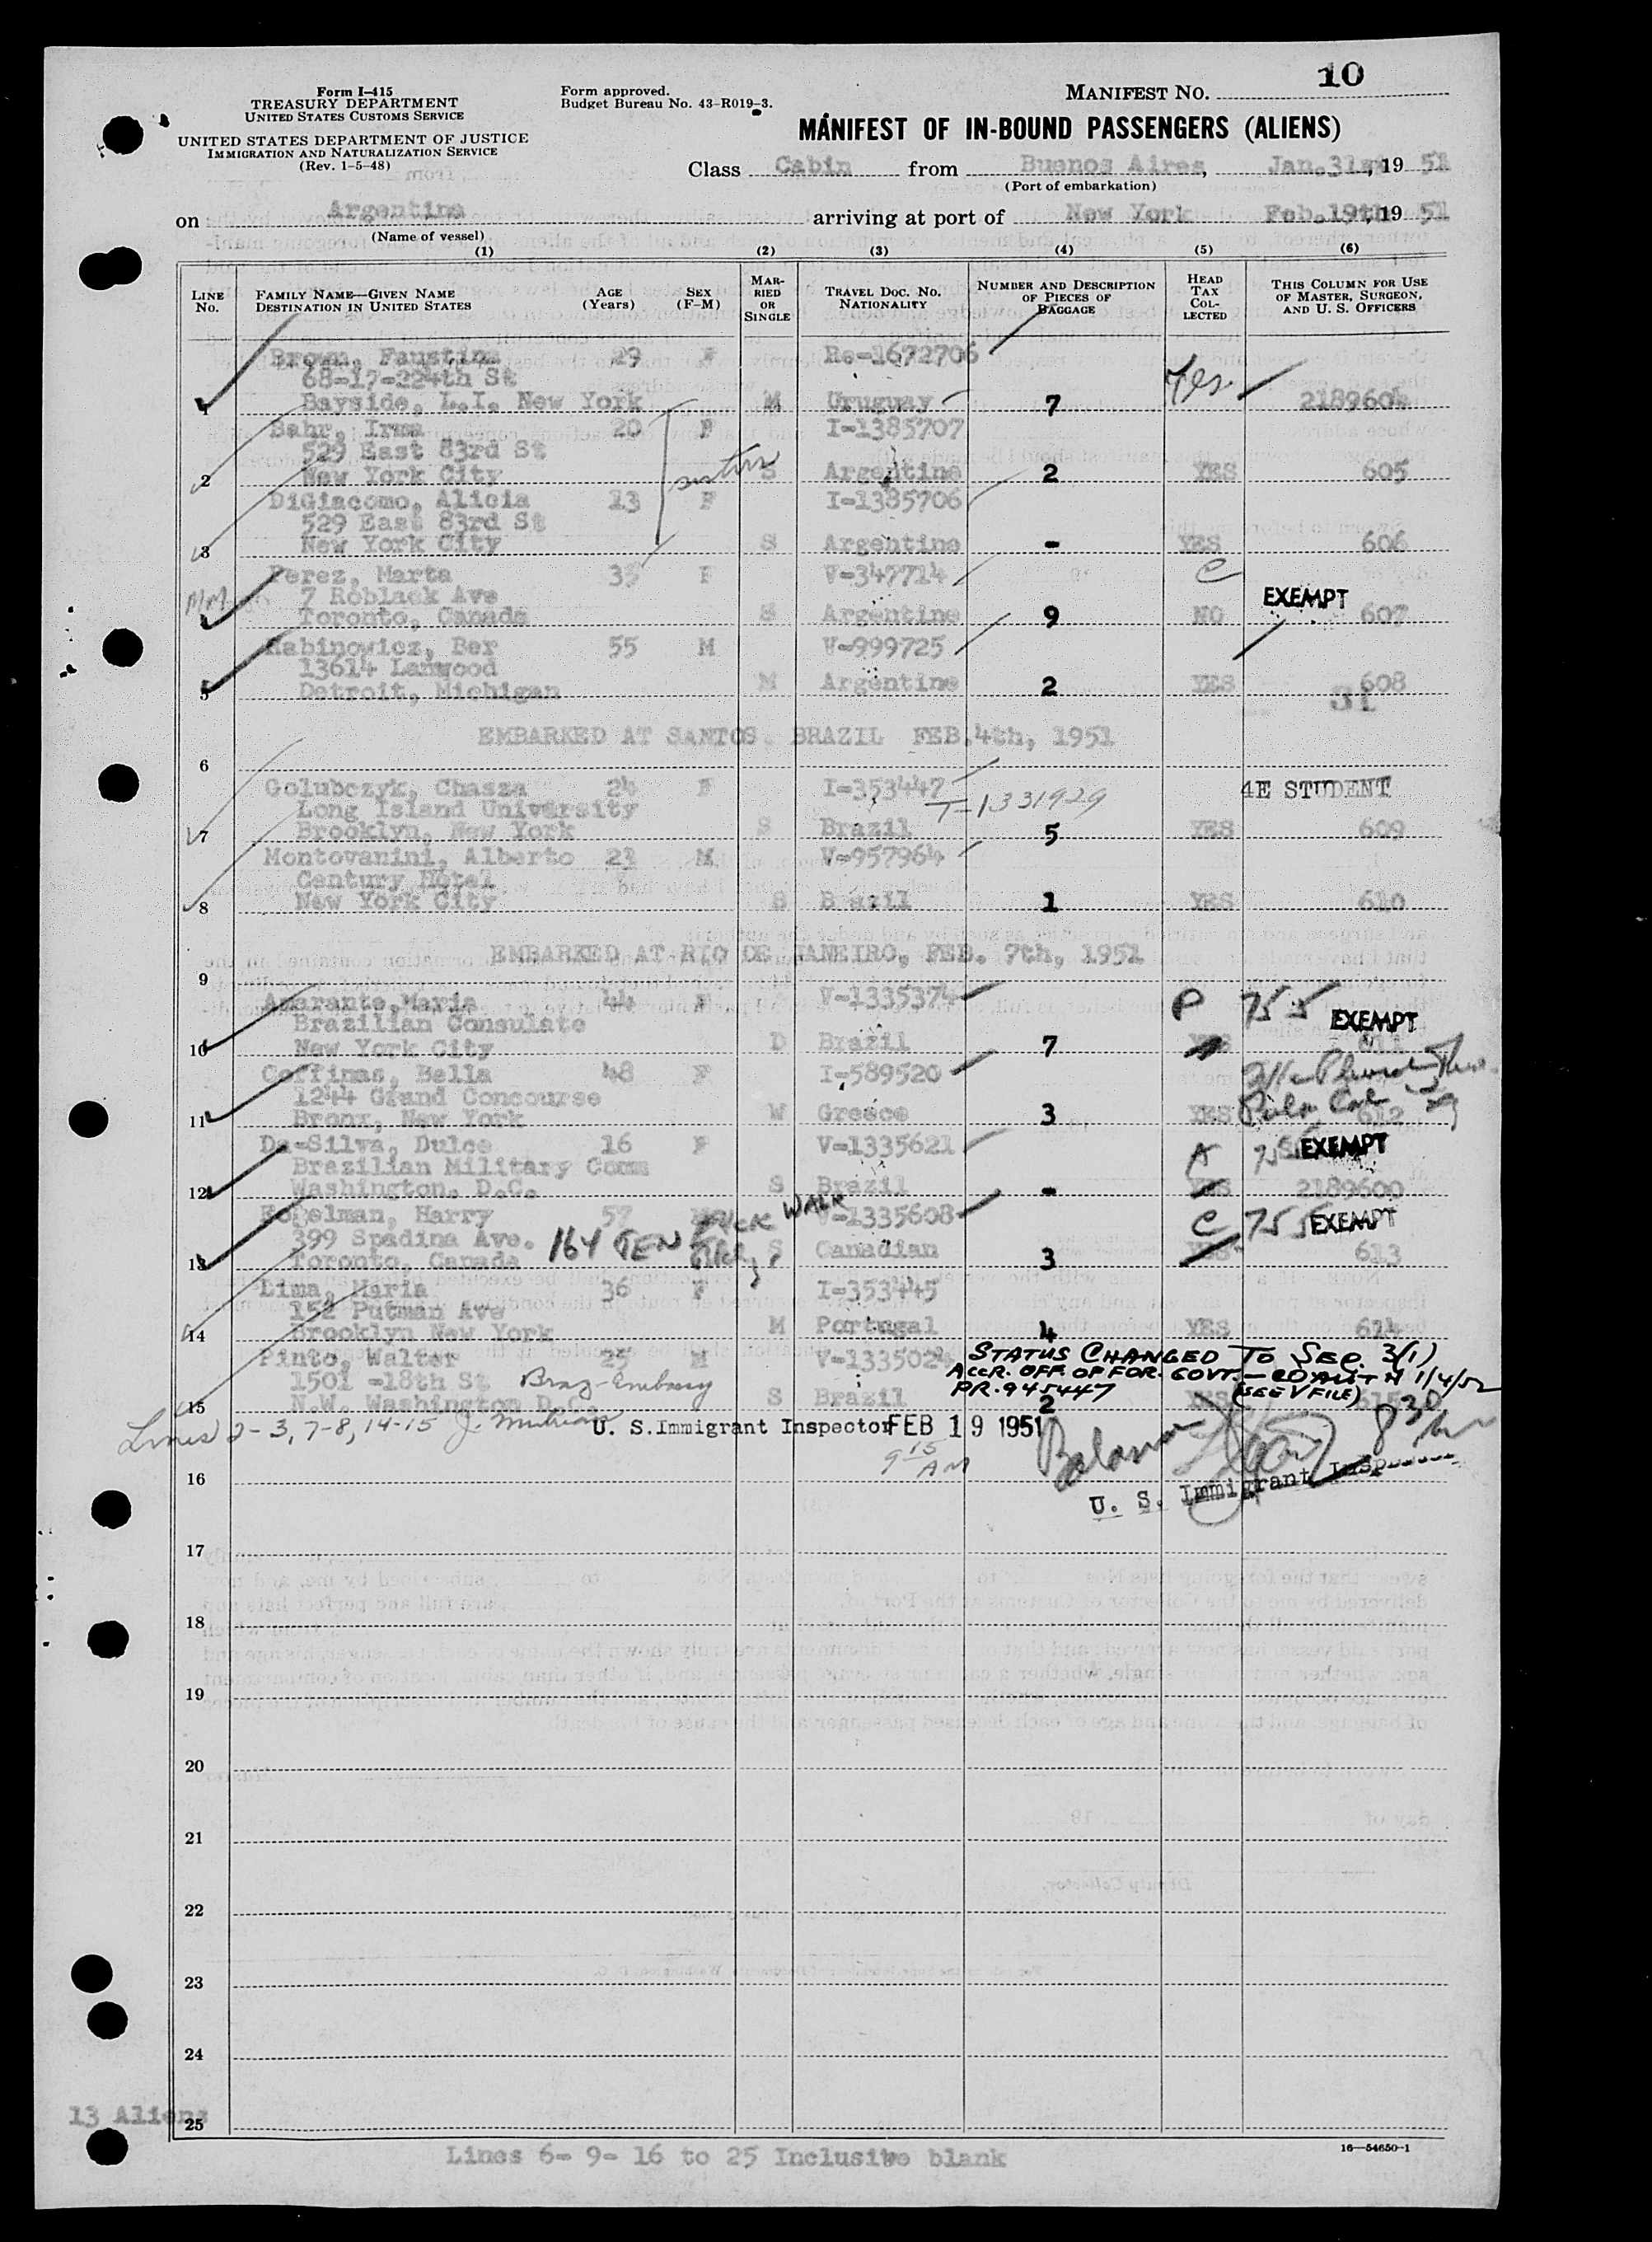 10
Form I-415
TREASURY DEPARTMENT
UNITED STATES CUSTOMS SERVICE
UNITED STATES DEPARTMENT OF JUSTICE
IMMIGRATION AND NATURALIZATION SERVICE
(Rev. 1-5-48)
Form approved.
Budget Bureau No. 43-R019-3.
MANIFEST NO.
MANIFEST OF IN-BOUND PASSENGERS (ALIENS)
Class Cabin from Buenos Aires, Jan.31st, 19 51
(Port of embarkation)
on Argentina arriving at port of New York Feb.19th, 19 51
(Name of vessel)
(1) (2) (3) (4) (5) (6)
LINE No. FAMILY NAME—GIVEN NAME DESTINATION IN UNITED STATES AGE (Years) SEX (F-M) MARRIED OR SINGLE TRAVEL DOC. NO. NATIONALITY NUMBER AND DESCRIPTION OF PIECES OF BAGGAGE HEAD TAX COLLECTED THIS COLUMN FOR USE OF MASTER, SURGEON, AND U. S. OFFICERS
Brown, Faustina 29 F Re-1672706
68-17-224th St
1 Bayside, L.I. New York M Uruguay 7 Yes 2189604
Bahr, Irma 20 F I-1385707
529 East 83rd St
2 New York City sisters S Argentine 2 YES 605
DiGiacomo, Alicia 13 F I-1385706
529 East 83rd St
3 New York City S Argentine - YES 606
Perez, Marta 35 F V-347714 C
7 Roblack Ave EXEMPT
4 Toronto, Canada S Argentine 9 NO 607
Rabinowicz, Ber 55 M V-999725
13614 Lanwood
5 Detroit, Michigan M Argentine 2 YES 608
31
EMBARKED AT SANTOS. BRAZIL FEB.4th, 1951
6
Golubczyk, Chasza 24 F I-353447 4E STUDENT
Long Island University T-1331929
7 Brooklyn, New York S Brazil 5 YES 609
Montovanini, Alberto 22 M V-957964
Century Hotel
8 New York City S B azil 1 YES 610
EMBARKED AT RIO DE JANEIRO, FEB. 7th, 1951
9
Amarante,Maria 44 F V-1335374 P 755
Brazilian Consulate EXEMPT
10 New York City D Brazil 7 YES 611
Coffinas, Bella 48 F I-589520
1244 Grand Concourse
11 Bronx, New York W Greece 3 YES 612
Da-Silva, Dulce 16 F V-1335621 EXEMPT
Brazilian Military Comm A 755
12 Washington, D.C. S Brazil - YES 2189600
Kopelman, Harry 57 M V-1335608 C 755 EXEMPT
399 Spadina Ave. 164 TEN EYCK WALK
13 Toronto, Canada S Canadian 3 YES 613
Lima, Maria 36 F I-353445
152 Putman Ave
14 Brooklyn New York M Portugal 4 YES 614
Pinto, Walter 25 M V-1335024 STATUS CHANGED TO SEC. 3(1)
1501 -18th St Braz-Embassy ACCR. OFF. OF FOR. GOVT. 1/4/52
15 N.W. Washington D.C. S Brazil PR. 945447 2 YES (SEE V FILE) 615
Lines 2-3, 7-8, 14-15 U. S.Immigrant Inspector FEB 19 1951 830
9 15 AM
16
U. S. Immigrant
17
18
19
20
21
22
23
24
13 Aliens
25
Lines 6- 9- 16 to 25 Inclusive blank
16—54650-1